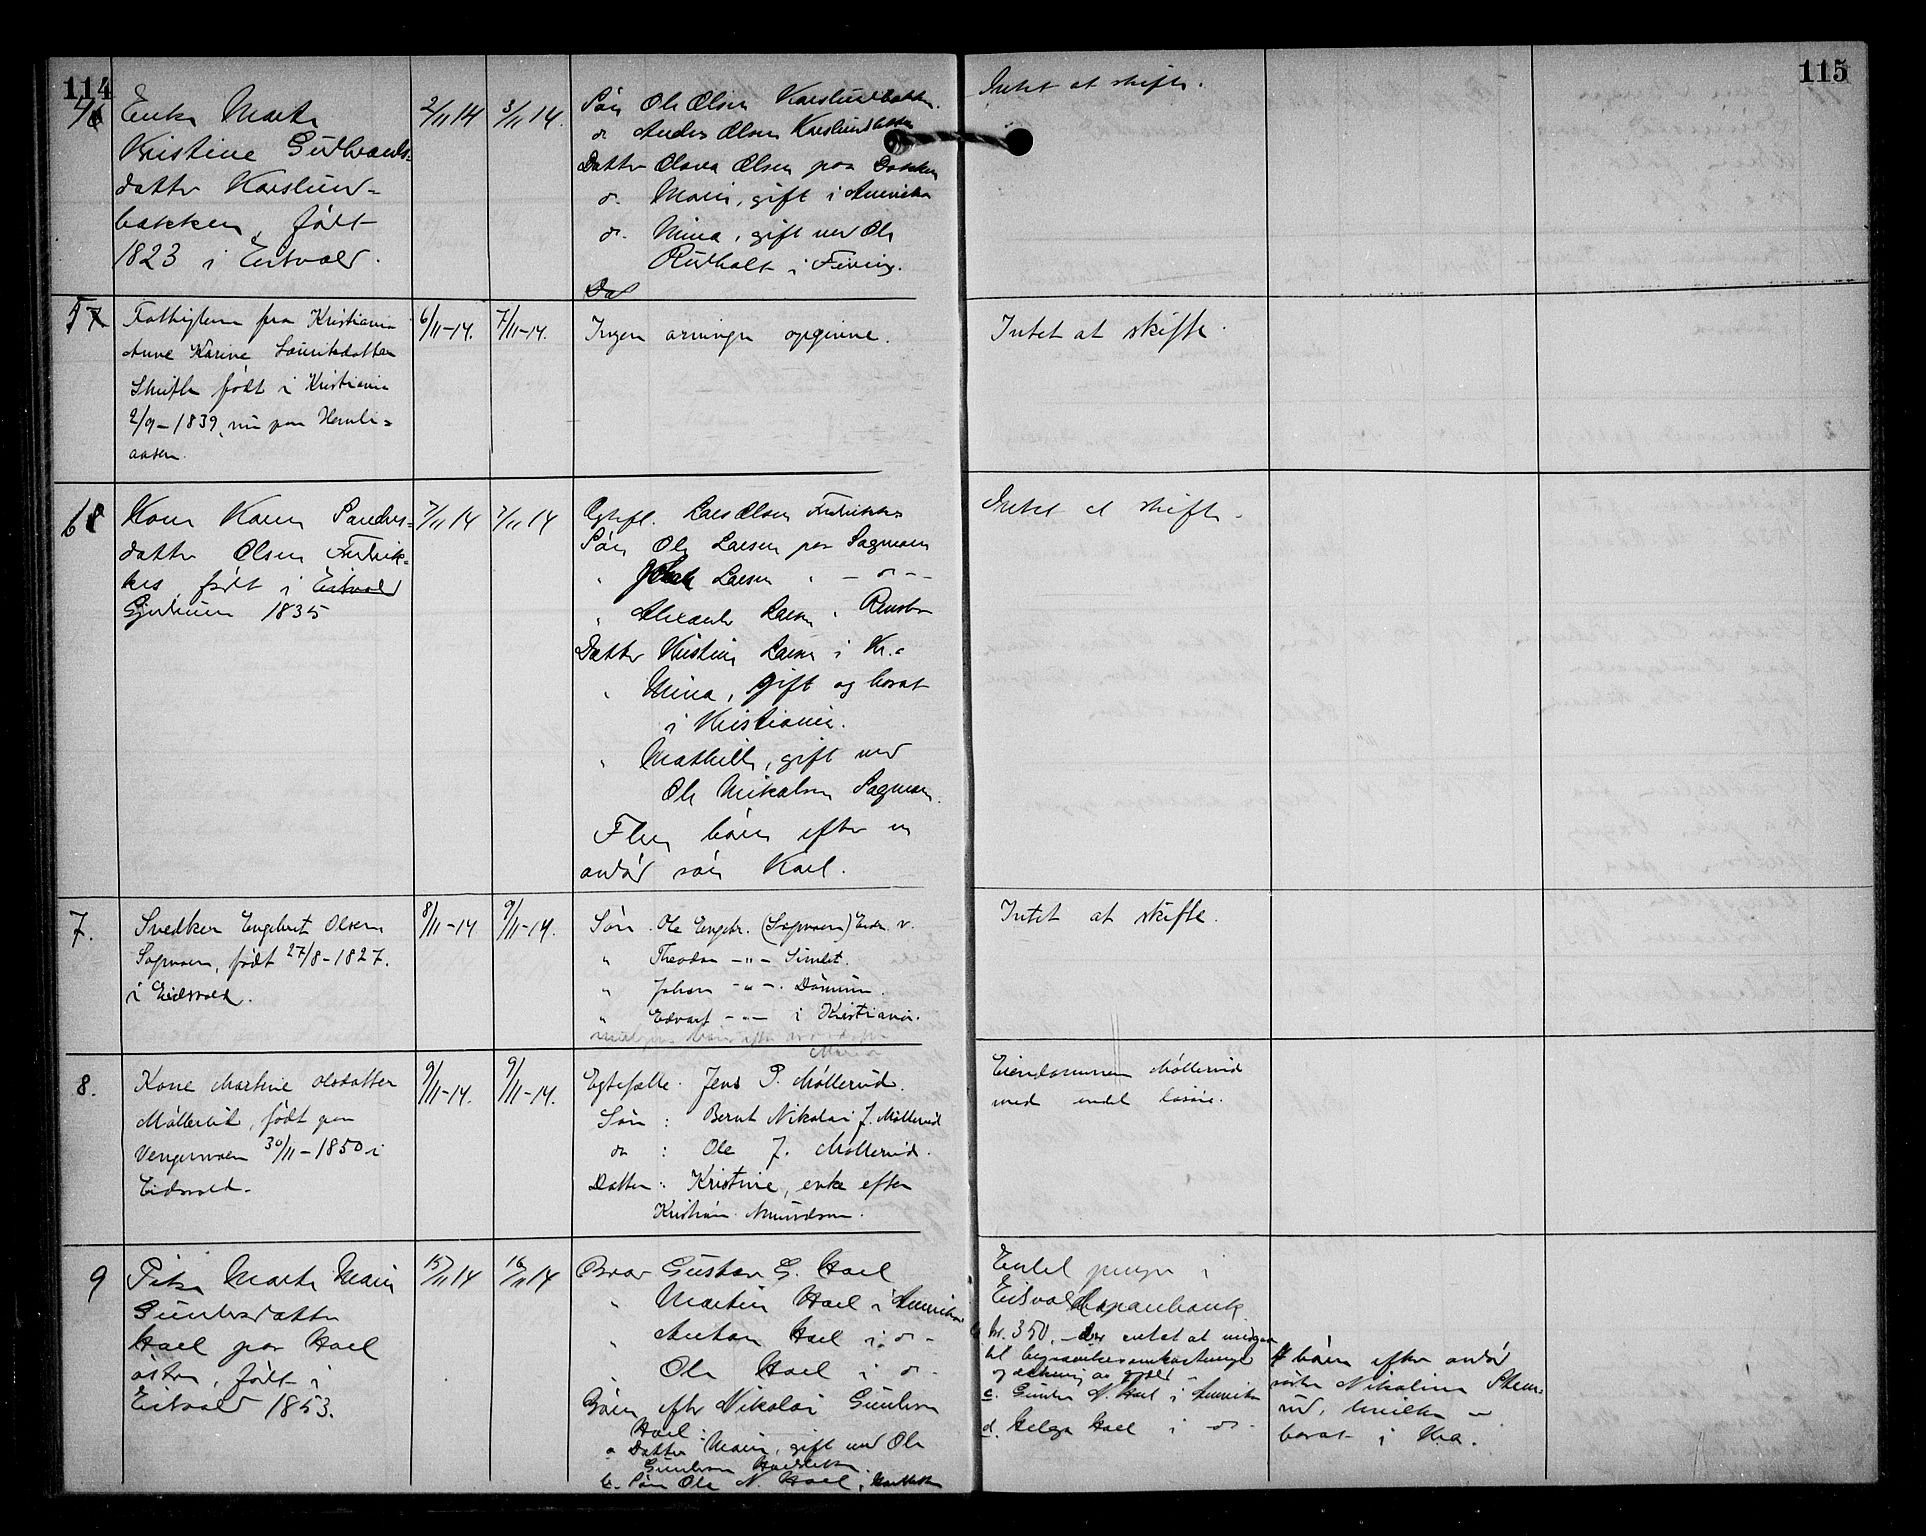 114
115
4
Enke Marte
Kristine Gudbrands-
datter Karslun-
bakken, født
1823 i Eidsvold.
2/11 14
3/11 14.
Søn Ole Olsen Karslundbakken.
do Anders Olsen Karslundbakken
Datter Olava Olsen paa Bakken
do Marie, gift i Amerika
do. Mina, gift med Ole
Rudholt i Feiring.
Intet at skifte.
5
Fattiglem fra Kristiania
Anne Karine Lauritsdatter
født i Kristiania
2/9-1839, nu paa Hemli-
aasen.
6/11-14.
7/11-14.
Ingen arvinger opgivne.
Intet at skifte.
6
Kone Karen Sanders-
datter Olsen Fredrik-
kes, født i Eidsvold
Gjerdrum 1835
7/11 14
7/11 14
Egtefl. Lars Olsen Fredrikkes
Søn Ole Larsen paa Sagmoen
" Larsen " - do -
" Alexander Larsen
Datter Kristine Larsen i Kr.a
" Mina, gift og bosat
i Kristiania.
" Mathilde, gift med
Ole Mikalsen Sagmoen.
Flere børn efter en
avdød søn Karl.
Intet at skifte.
7.
Snedker Engebret Olsen
Sagmoen, født 27/8-1827.
i Eidsvold.
8/11-14
9/11-14.
Søn. Ole Engebr. (Sagmoen) Eidsv.
" Theodor -"-
" Johan -"-
" Edvart -"- i Kristiania.
Intet at skifte.
8.
Kone Martine Olsdatter
Møllerud, født paa
30/11-1850 i
Eidsvold.
9/11-14.
9/11-14.
Egtefælle. Jens P. Møllerud.
Søn : Bernt Nikolai J. Møllerud
do : Ole J. Møllerud.
Datter: Kristine, enke efter
Kristian Amundsen.
Eiendommen Møllerud
med endel løsøre.
9
Marte Marie
Gundersdatter
Hael paa Hael
østre, født i
Eidsvold 1853.
15/11 14
16/11 14
Bror Gustav G. Hael
" Martin Hael i Amerika
" Anton Hael i do -
" Ole Hael i do -
Børn efter Nikolai Gundersen
Hael:
a Datter Marie, gift med Ole
Gundersen
b. Søn Ole N. Hael,
Endel penge i
Eidsvold Sparebank
kr. 350. - der antat at medgaa
til begravelsesomkostninger
og dækning av gjæld
c. Gunder N. Hael i Amerika
d. Helga Hael i do -
4 børn efter avdød
søster Nikoline
rud, hvilke er
bosat i Kra.